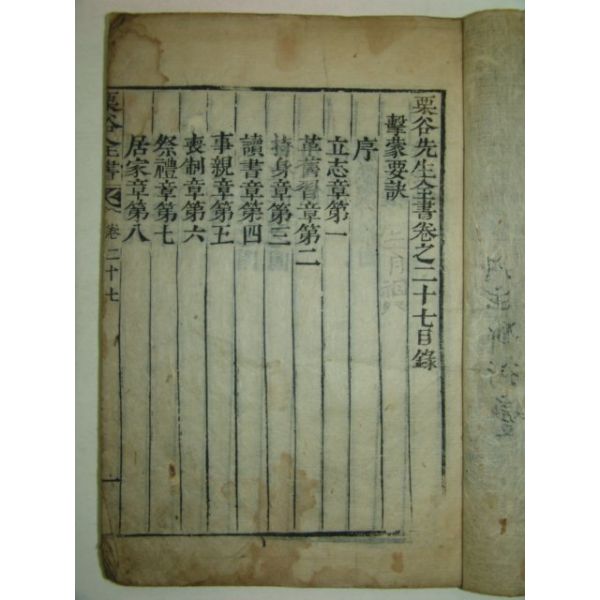 栗谷先生全書卷之二十七目錄
擊蒙要訣
序
立志章第一
革舊習章第二
持身章第三
讀書章第四
事親章第五
喪制章第六
祭禮章第七
居家章第八
栗谷全書
卷二十七
一